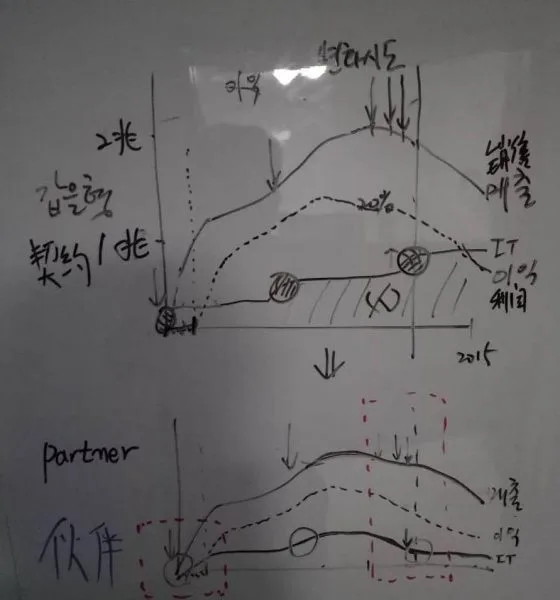 변화시도
이익
2兆
갑을형
銷售
매출
20%
契约
1兆
IT
이익
利润
2015
partner
매출
伙伴
이익
IT